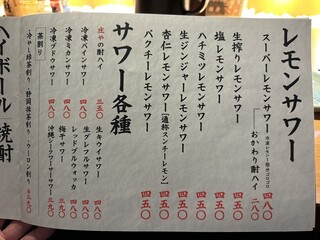 レモンサワー
スーパーレモンサワー 四八〇
おかわり酎ハイ 二八〇
生搾りレモンサワー 四五〇
塩レモンサワー 四五〇
ハチミツレモンサワー 四五〇
生ジンジャーレモンサワー 四五〇
杏仁レモンサワー【通称スンチーレモン】 四五〇
パクチーレモンサワー 四五〇
サワー各種
庄やの酎ハイ 三五〇
冷凍パインサワー 四八〇
冷凍ミカンサワー 四八〇
冷凍ブドウサワー 四八〇
生キウイサワー 四八〇
生グレフルサワー 四八〇
レッドブルウォッカ 四八〇
梅干サワー 三九〇
沖縄シークワーサーサワー 三九〇
【茶割り】
ハイボール
焼酎